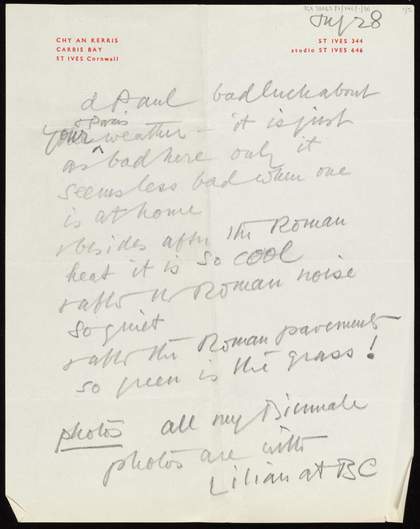 July 28
CHY AN KERRIS
CARBIS BAY
ST IVES Cornwall
ST IVES 344
studio ST IVES 646
d Paul bad luck about
& Paris
your weather – it is just
as bad here only it
seems less bad when one
is at home
& besides after the Roman
heat it is so COOL
& after the Roman noise
so quiet
& after the Roman pavements
so green is the grass!
photos all my Biennale
photos are with
Lilian at BC